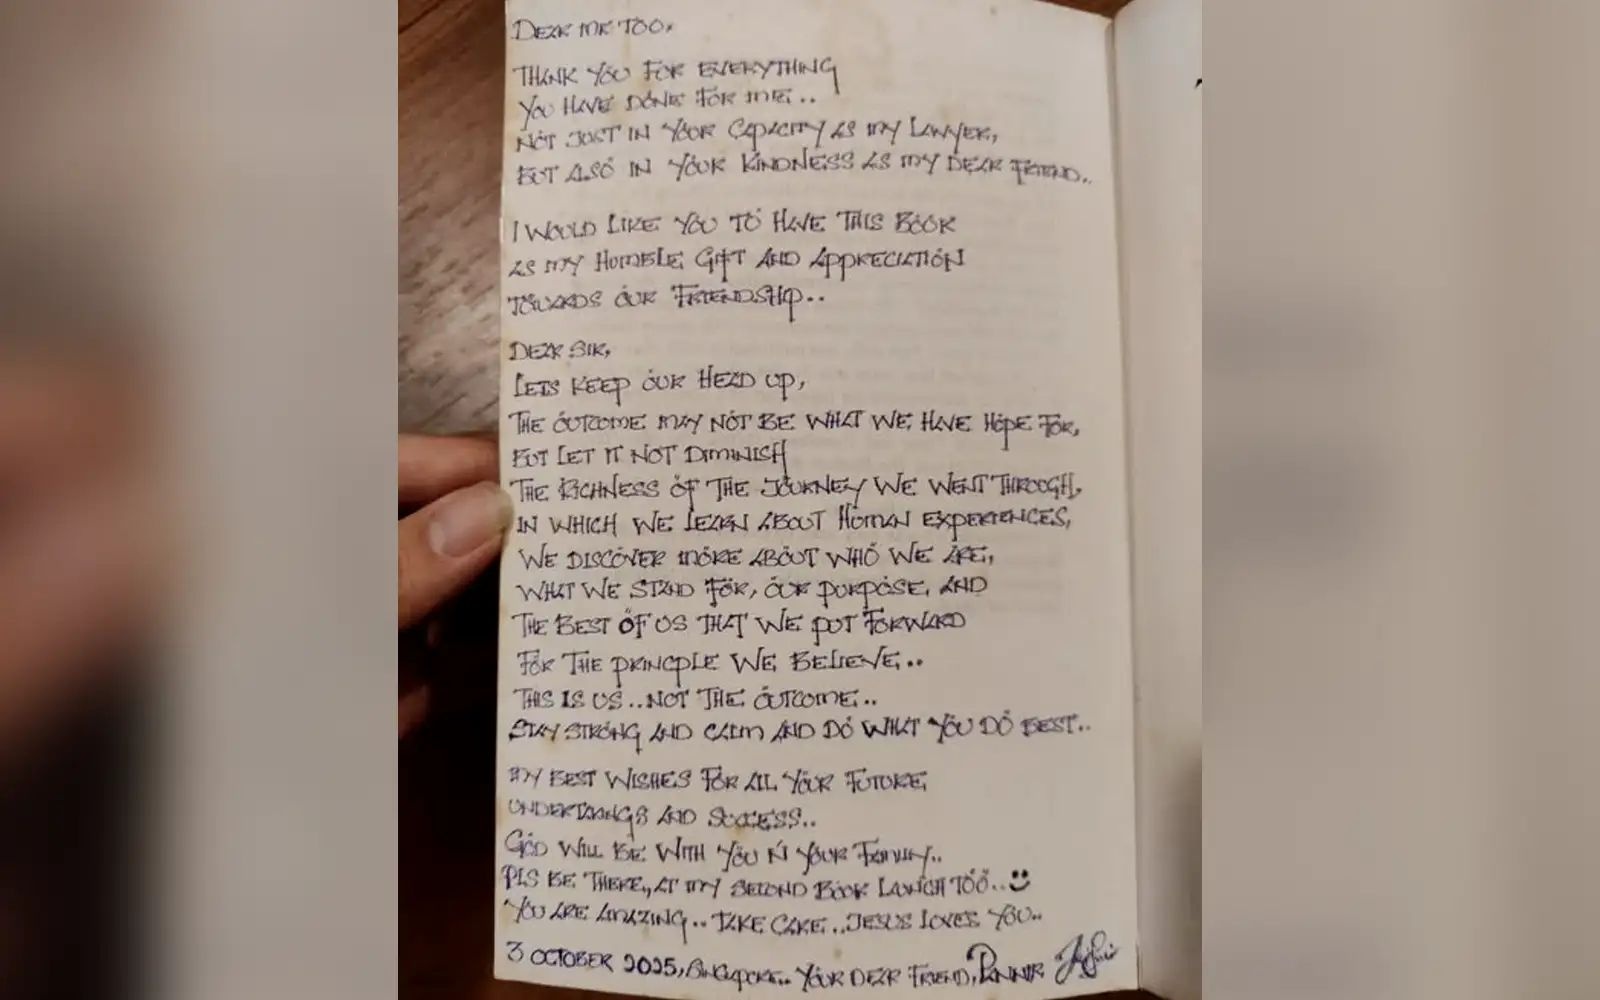 DEAR MR TOO,
THANK YOU FOR EVERYTHING
YOU HAVE DONE FOR ME..
NOT JUST IN YOUR CAPACITY AS MY LAWYER,
BUT ALSO IN YOUR KINDNESS AS MY DEAR FRIEND..
I WOULD LIKE YOU TO HAVE THIS BOOK
AS MY HUMBLE GIFT AND APPRECIATION
TOWARDS OUR FRIENDSHIP..
DEAR SIR,
LETS KEEP OUR HEAD UP,
THE OUTCOME MAY NOT BE WHAT WE HAVE HOPE FOR,
BUT LET IT NOT DIMINISH
THE RICHNESS OF THE JOURNEY WE WENT THROUGH,
IN WHICH WE LEARN ABOUT HUMAN EXPERIENCES,
WE DISCOVER MORE ABOUT WHO WE ARE,
WHAT WE STAND FOR, OUR PURPOSE, AND
THE BEST OF US THAT WE PUT FORWARD
FOR THE PRINCPLE WE BELIEVE..
THIS IS US..NOT THE OUTCOME..
STAY STRONG AND CALM AND DO WHAT YOU DO BEST..
MY BEST WISHES FOR ALL YOUR FUTURE
UNDERTAKINGS AND SUCCESS..
GOD WILL BE WITH YOU N YOUR FAMILY..
PLS BE THERE,, AT MY SECOND BOOK LAUNCH TOO..
YOU ARE AMAZING.. TAKE CARE..JESUS LOVES YOU..
3 OCTOBER 2025, SINGAPORE.. YOUR DEAR FRIEND, PANNIR